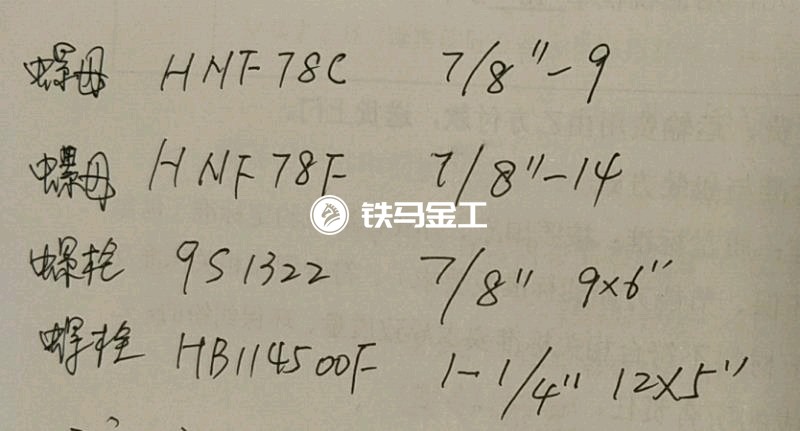 螺母 HNF78C 7/8"-9
螺母 HNF78F 7/8"-14
铁马金工
螺栓 9S1322 7/8" 9×6"
螺栓 HB114500F 1-1/4" 12×5"